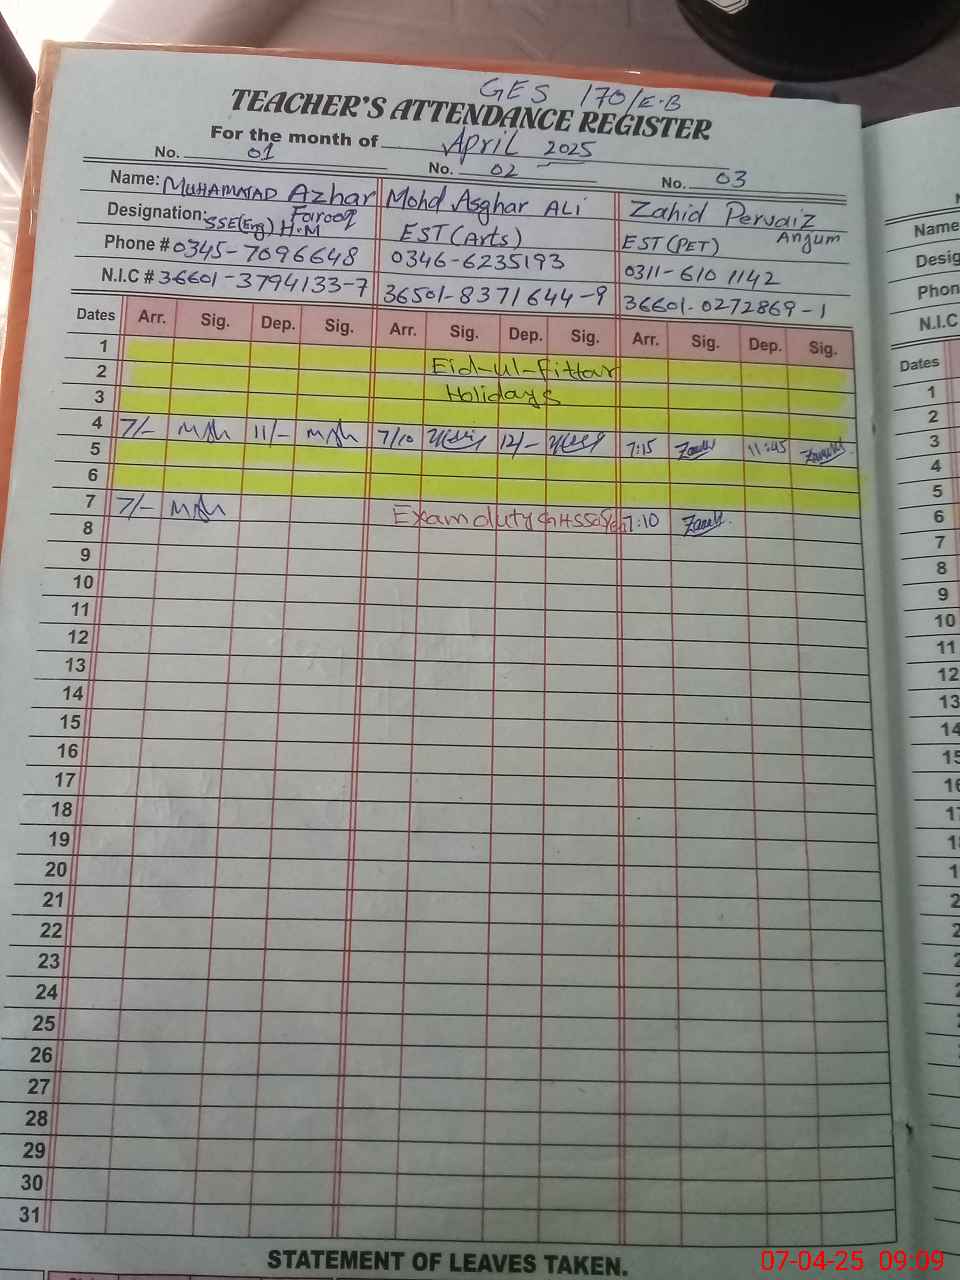 GES 170/E.B
TEACHER'S ATTENDANCE REGISTER
For the month of April 2025
No. 01 No. 02 No. 03
Name: MUHAMMAD Azhar Farooq Mohd Asghar ALI Zahid Pervaiz Anjum
Designation: SSE(Eng) H.M EST(Arts) EST(PET)
Phone # 0345-7096648 0346-6235193 0311-6101142
N.I.C # 36601-3794133-7 36501-8371644-9 36601-0272869-1
Dates Arr. Sig. Dep. Sig. Arr. Sig. Dep. Sig. Arr. Sig. Dep. Sig.
1
2 Eid-ul-Fittar
3 Holidays
4 7/- 11/- 7/10 12/- 7:15 11:45
5
6
7 7/- Exam duty 7:10
8
9
10
11
12
13
14
15
16
17
18
19
20
21
22
23
24
25
26
27
28
29
30
31
STATEMENT OF LEAVES TAKEN.
Name
Desig
Phon
N.I.C
Dates
1
2
3
4
5
6
7
8
9
10
11
12
13
14
07-04-25 09:09